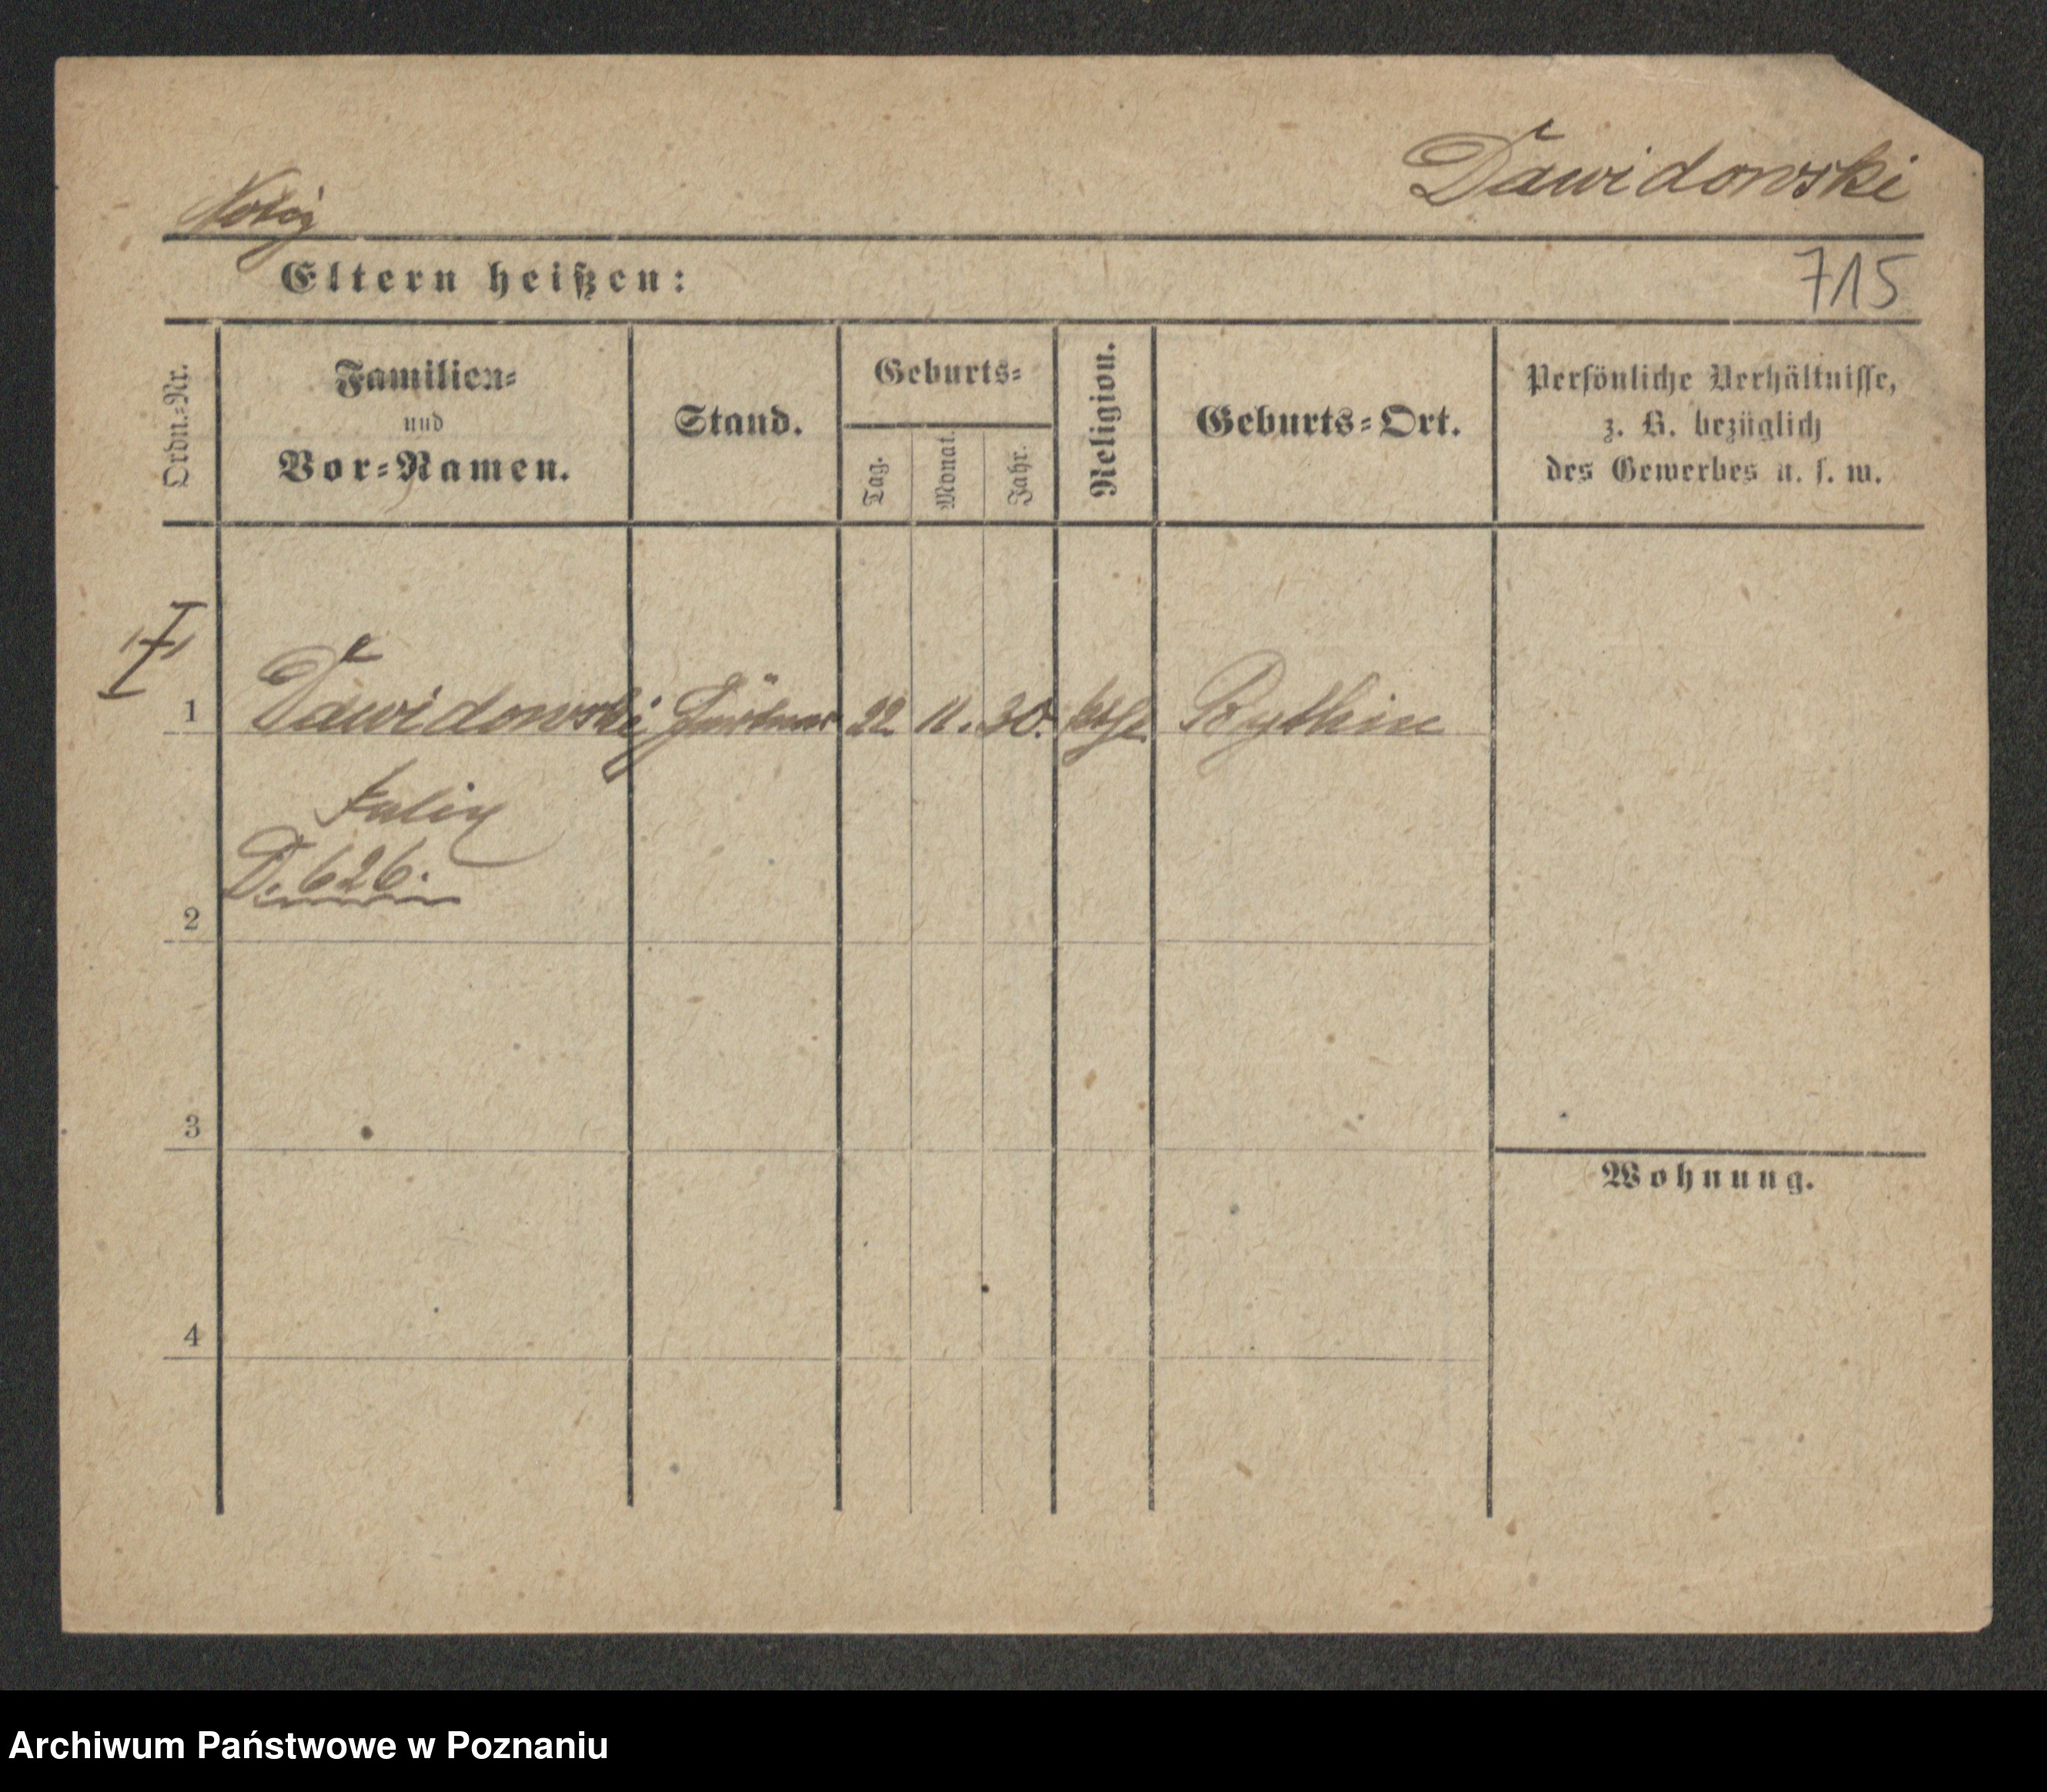 Dawidowski
Notiz
Eltern heißen:
715
Ordn.=Nr.
Familien=
und
Vor=Namen.
Stand.
Geburts=
Tag.
Monat.
Jahr.
Religion.
Geburts=Ort.
Persönliche Verhältnisse,
z. B. bezüglich
des Gewerbes u. s. w.
1 Dawidowski Gärtner 22 11. 30. kath
D. 626.
2
3
Wohnung.
4
Archiwum Państwowe w Poznaniu